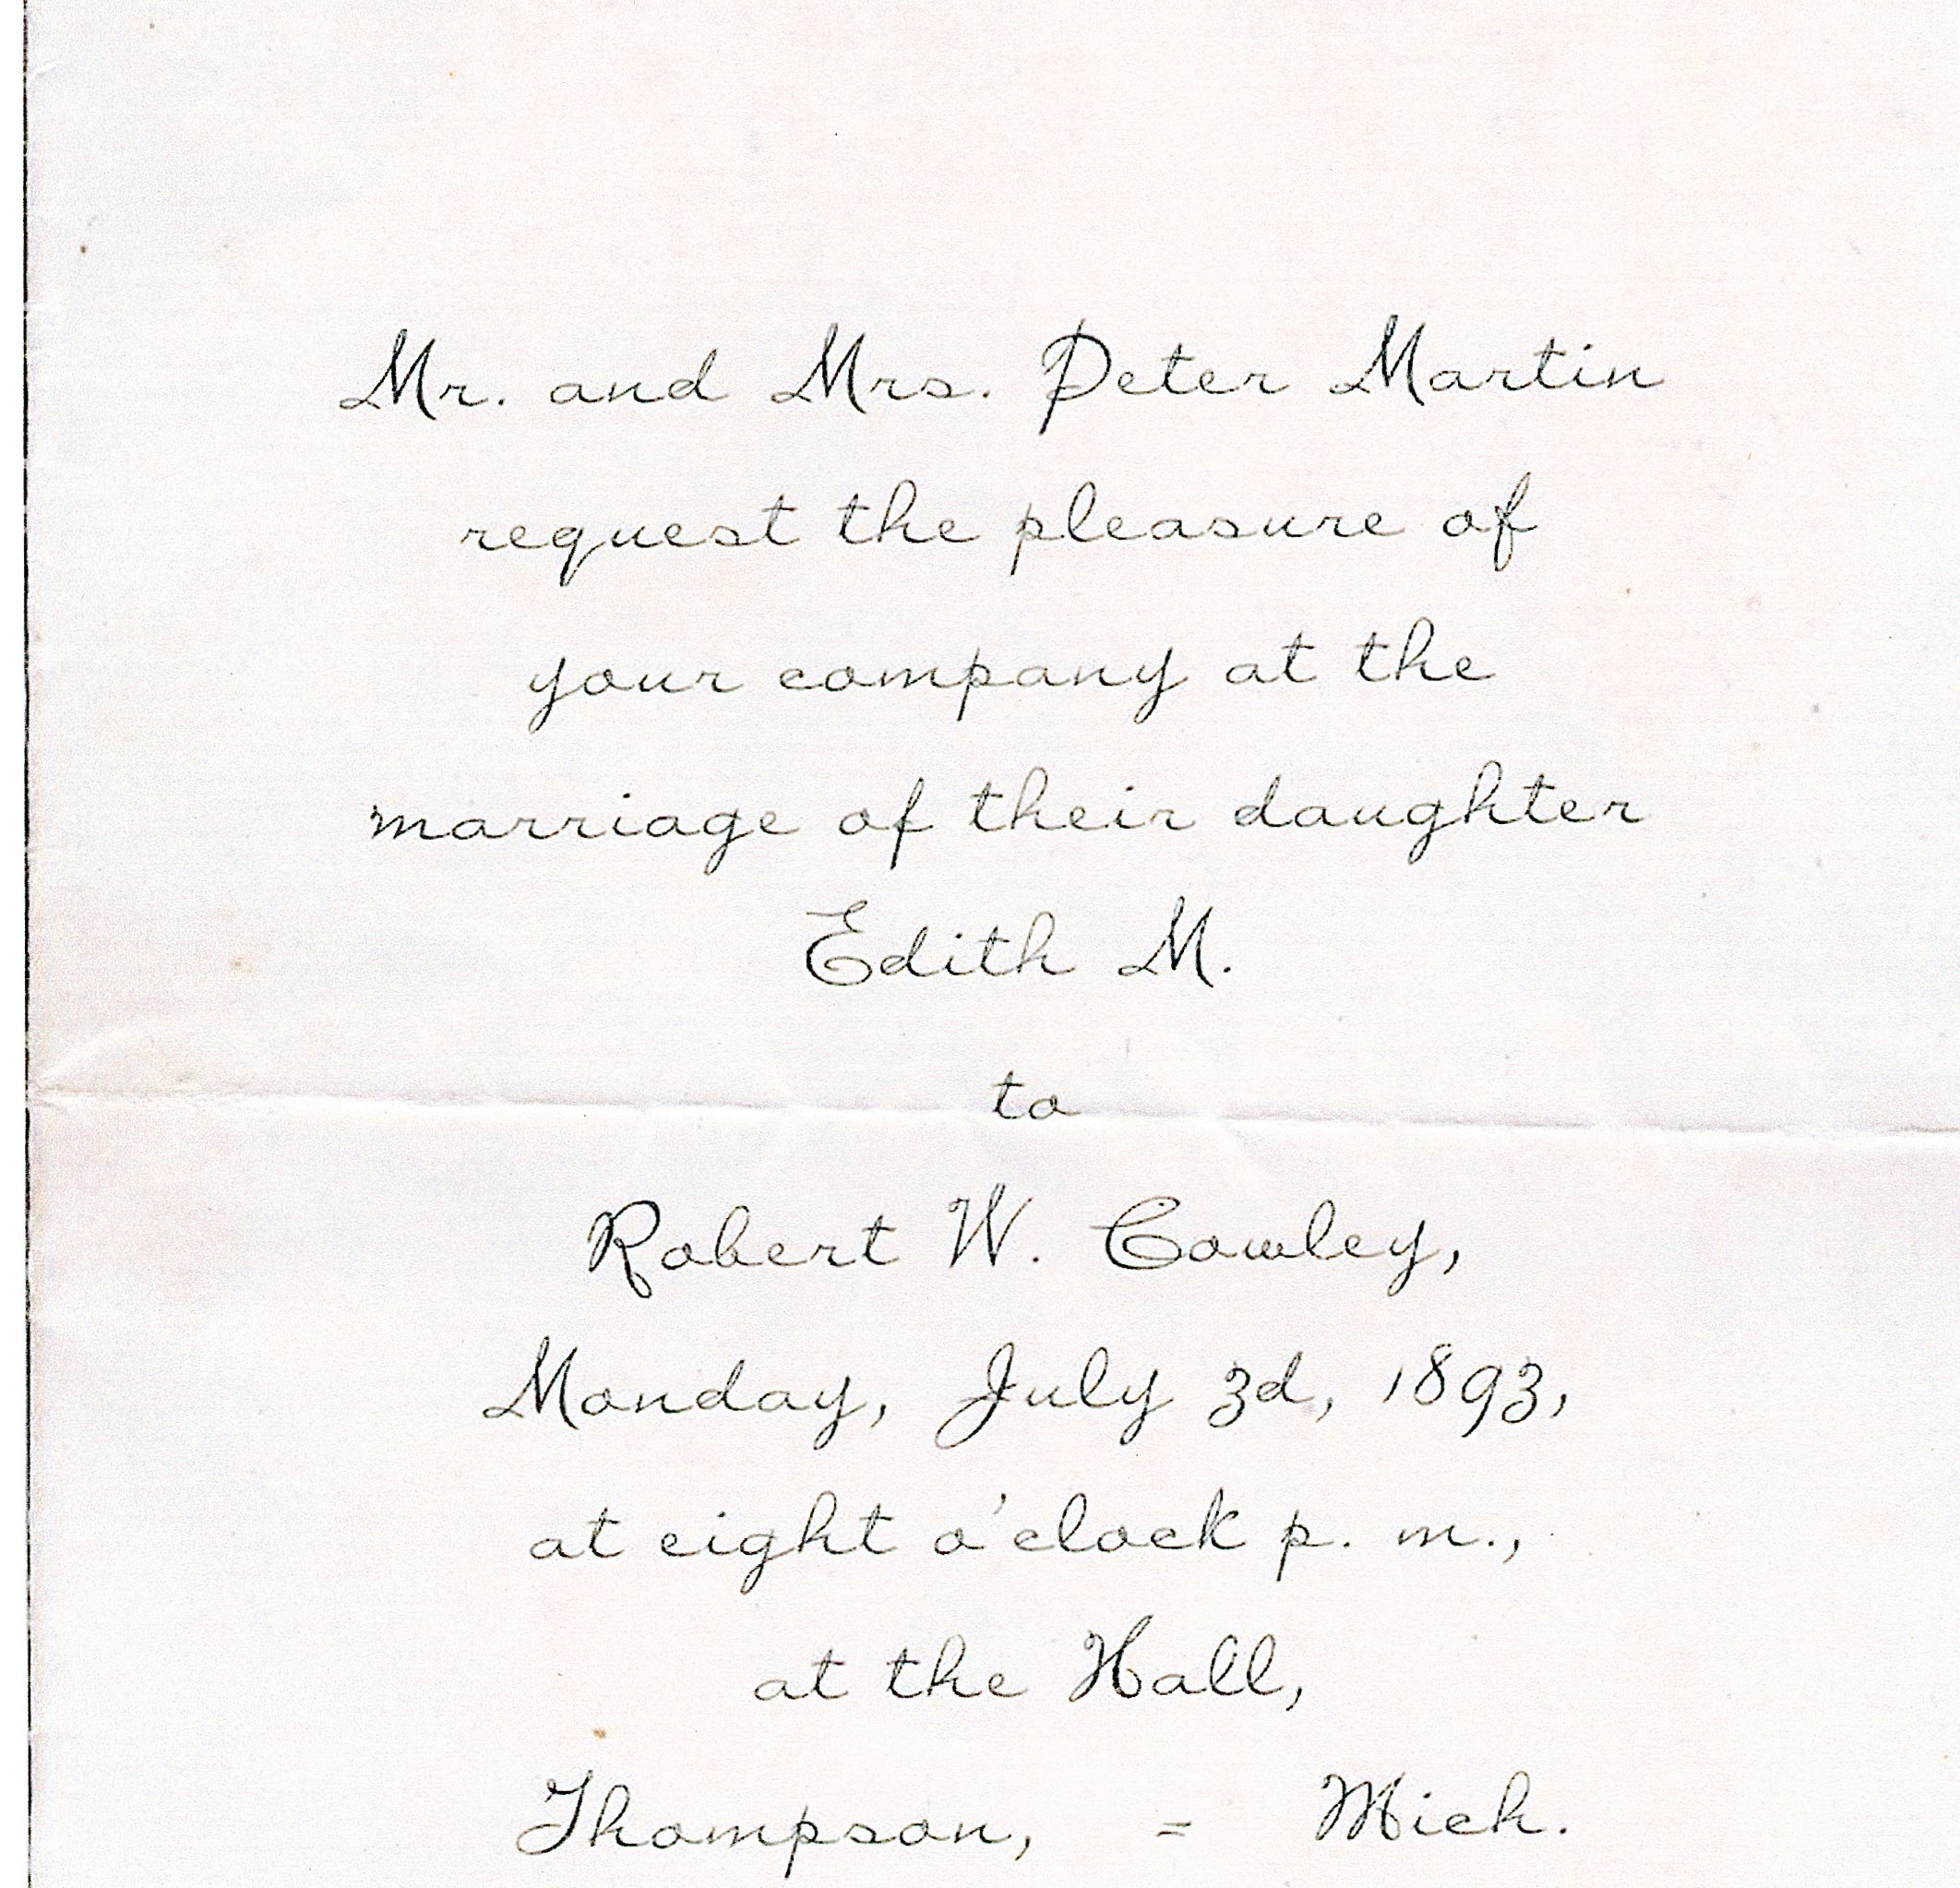 Mr. and Mrs. Peter Martin
request the pleasure of
your company at the
marriage of their daughter
Edith M.
to
Robert W. Cowley,
Monday, July 3d, 1893,
at eight o'clock p. m.,
at the Hall,
Thompson, = Mich.